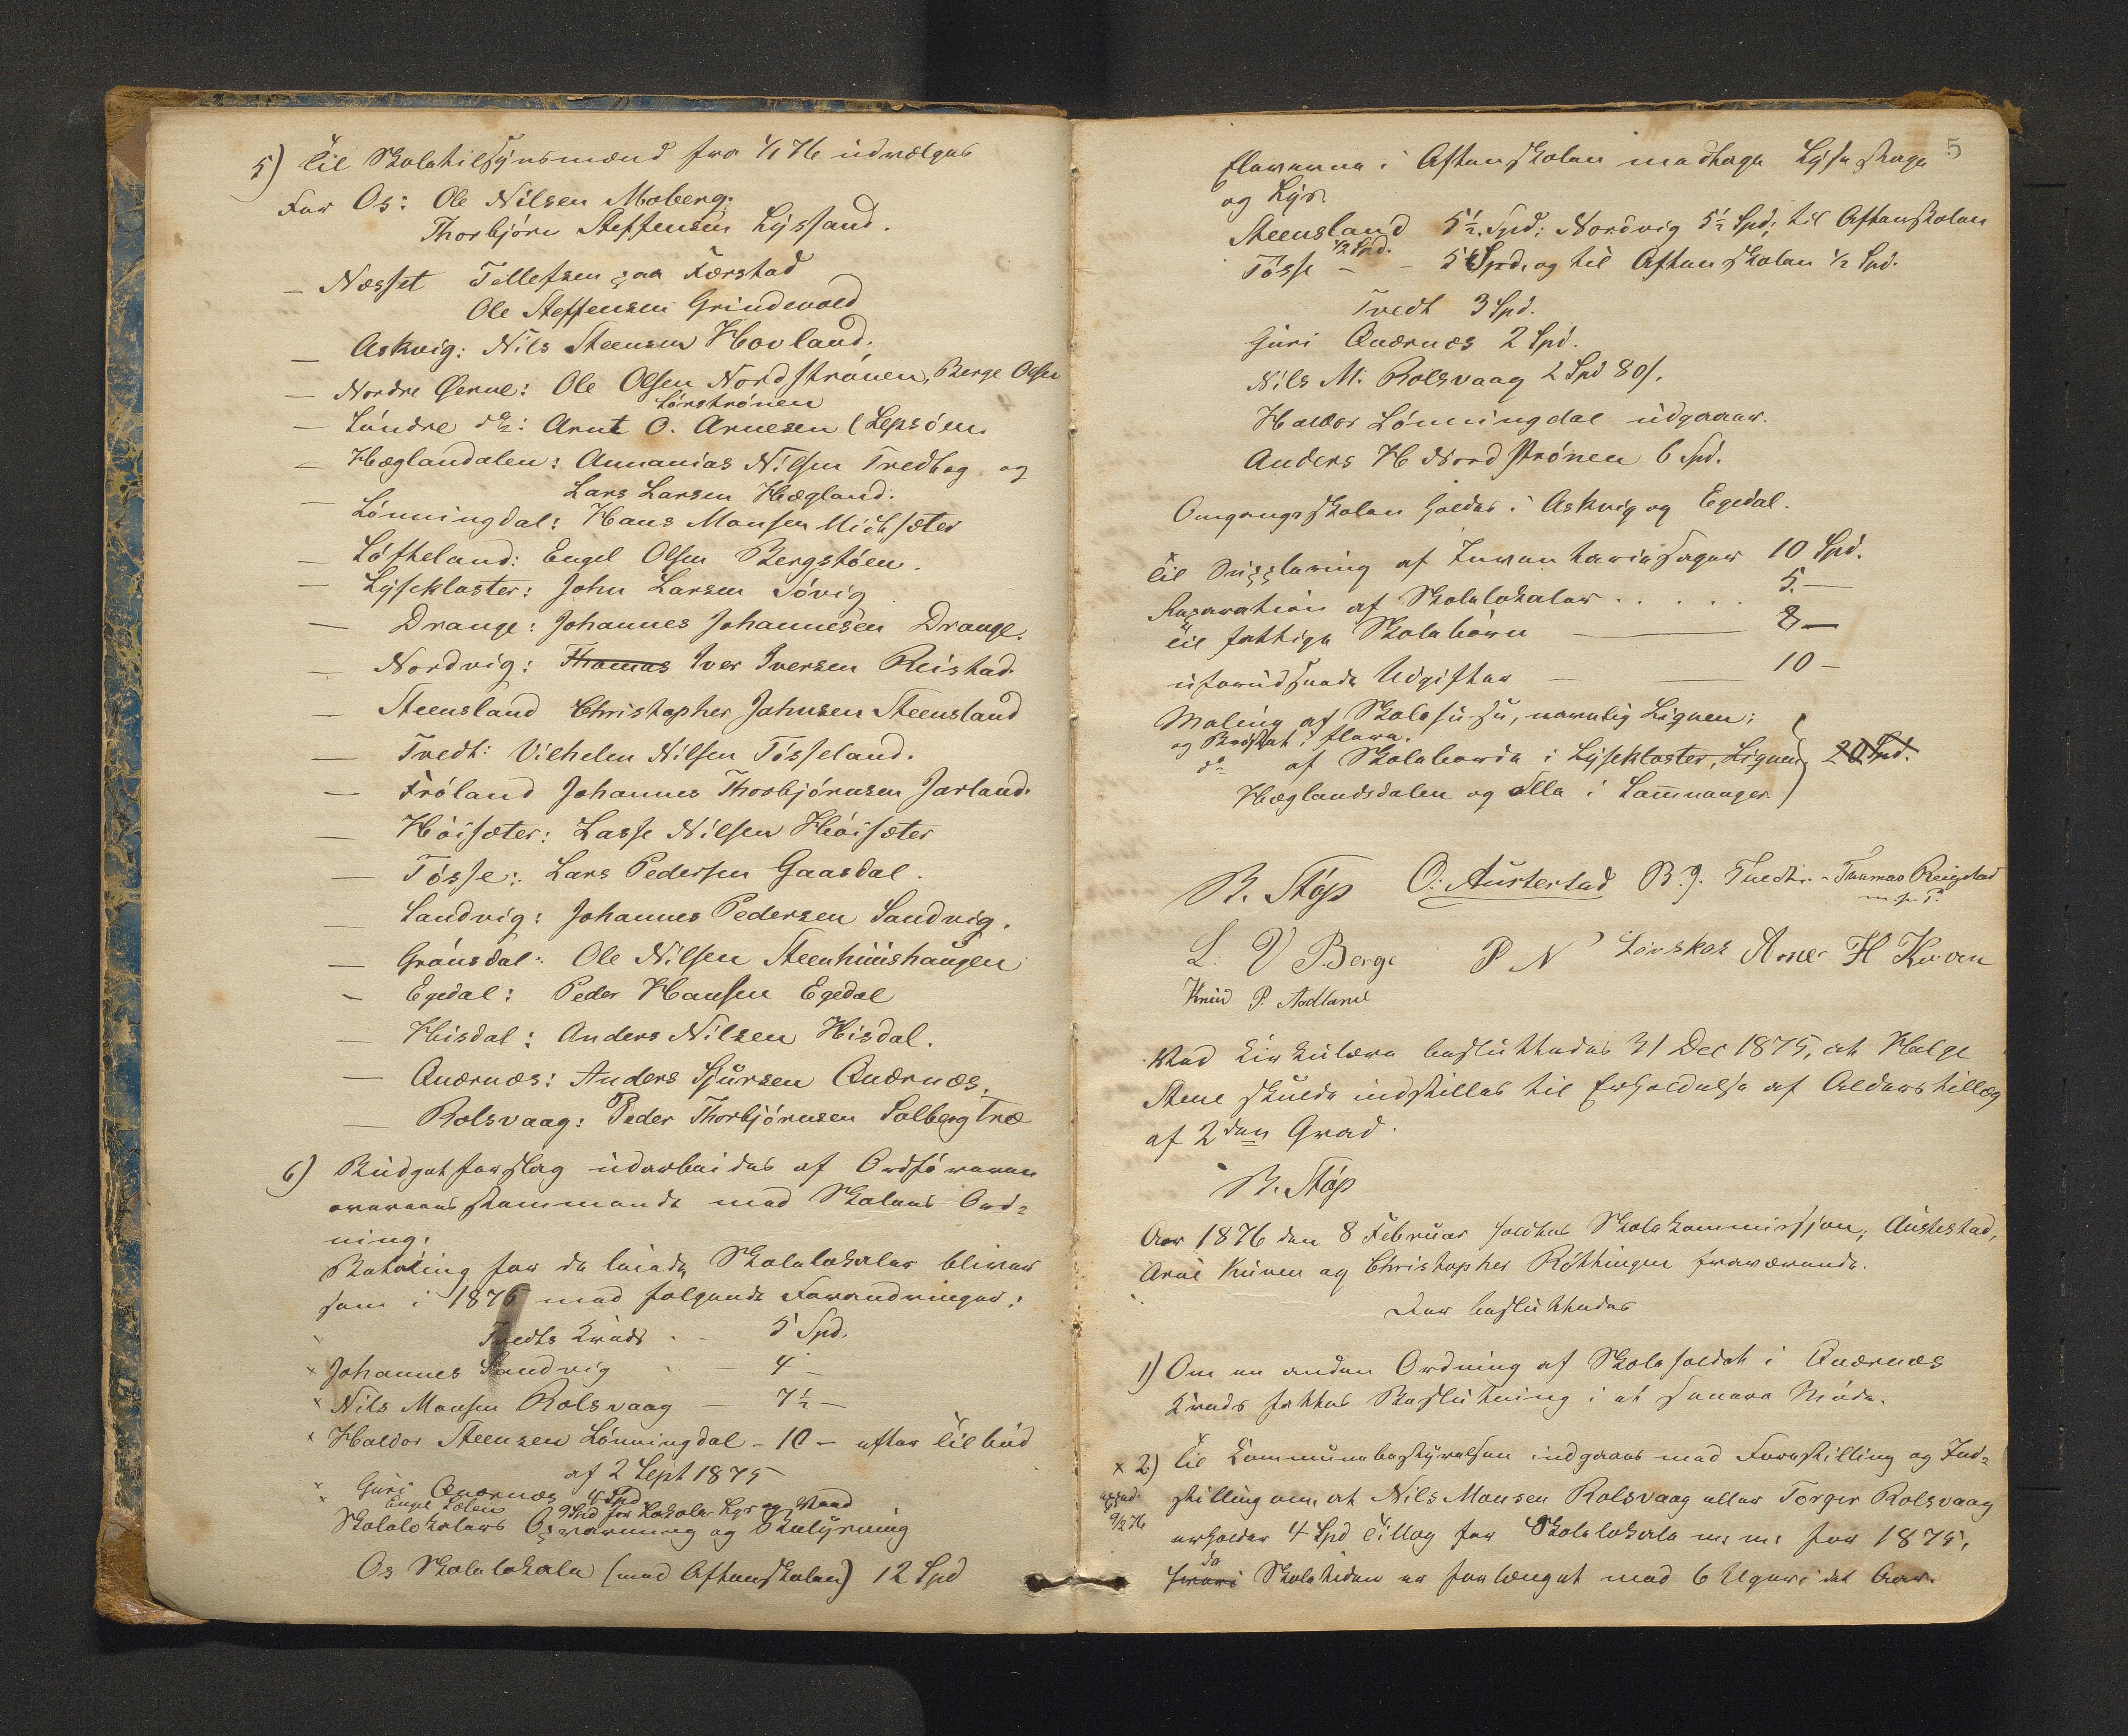 5) Til Skoletilsynsmænd fra 1/1 76 udvælges
For Os: Ole Nilsen Moberg.
Thorbjörn Steffensen Lyssand.
— Næsset Tollefsen paa Førstad
Ole Steffensen Grindevold
— Askvig: Nils Steensen Hovland.
— Nordre Øerne: Ole Olsen Nordströnen, Berge Olsen
Sørströnen
— Söndre do: Arnt O. Arnesen (Lepsöen.
— Hæglandalen: Annanias Nilsen Tvedtog og
Lars Larsen Hægland.
— Lönningdal: Hans Monsen Midtsæter
— Löfteland: Engel Olsen Bergstöen.
— Lysekloster: John Larsen Sövig
— Drange: Johannes Johannesen Drange.
— Nordvig: Thomas Iver Iversen Reistad.
— Steensland Christopher Johnsen Steensland
— Tvedt: Vilhelm Nilsen Tösseland.
— Fröland Johannes Thorbjörnsen Jarland.
— Höisæter: Lasse Nilsen Höisæter
— Tösse: Lars Pedersen Gaasdal.
— Sandvig: Johannes Pedersen Sandvig.
— Grönsdal: Ole Nilsen Steenhuushaugen
— Egedal: Peder Hansen Egedal
— Hisdal: Anders Nilsen Hisdal.
— Qværnæs: Anders Sjursen Qværnæs.
— Rolsvaag: Peder Thorbjörnsen Solberg Træ
6) Budgetforslag udarbeides af Ordföreren
overeensstemmende med Skolens Ord-
ning.
Betaling for de leiede Skolelokaler bliver
som i 1875 med fölgende Forandringer:
Tvedts Kreds - - 5 Spd.
x Johannes Sandvig - — 4 —
x Nils Monsen Rolsvaag — 7½ —
x Haldor Steensen Lönningdal - 10 — efter Tilbud
af 2 Sept 1875
x Guri Qværnæs 4 Spd
x Engel 9 Spd for Lokale, Lys og Ved
Skolelokalers Opvarmning og Belysning
Os Skolelokale (med Aftenskolen) 12 Spd
5
Eleverne i Aftenskolen medtage Lysestage
og Lys.
Steensland 5½ Spd: Nordvig 5½ Spd; til Aftenskolen
½ Spd.
Tösse — - 5 Spd. og til Aftenskolen ½ Spd.
Tvedt 3 Spd.
Guri Qværnæs 2 Spd.
Nils M. Rolsvaag 2 Spd 80 s.
Haldor Lönningdal udgaaer.
Anders H Nordströnen 6 Spd.
Omgangsskolen holdes i Askvig og Egedal.
Til Supplering af Inventariesager 10 Spd.
Reparation af Skolelokaler . . . . . 5. —
Til fattige Skolebörn — — 8 —
uforudseede Udgifter — — 10 —
Maling af Skolehuse, nemlig Lignen;
og Bröstet i flere.
do af Skoleborde i Lysekloster, Lignen, 20 Spd.
Hæglandsdalen og alle i Samnanger.
R. Stöp O: Austestad B. J. Tvedt. - Thomas Reigstad
m. p. P.
L. V Berge P N Lönskor Arne H Kvæn
Knud P. Aadland
Ved Cirkulære besluttedes 31 Dec 1875, at Helge
Steen skulde indstilles til Erholdelse af Alderstillæg
af 2den Grad.
R. Stöp
Aar 1876 den 8 Februar holdtes Skolekommission, Austestad,
Arne Kuven og Christopher Röttingen fraværende.
Der besluttedes
1) Om en anden Ordning af Skoleholdet i Qværnæs
Kreds fattes Beslutning i et senere Möde.
x 2) Til Kommunebestyrelsen indgaaes med Forestilling og Ind-
stilling om, at Nils Monsen Rolsvaag eller Torger Rolsvaag
9/2 76
erholder 4 Spd Tillæg for Skolelokale m. m. for 1875,
da
hvori Skoletiden er forlænget med 6 Uger i det Aar.